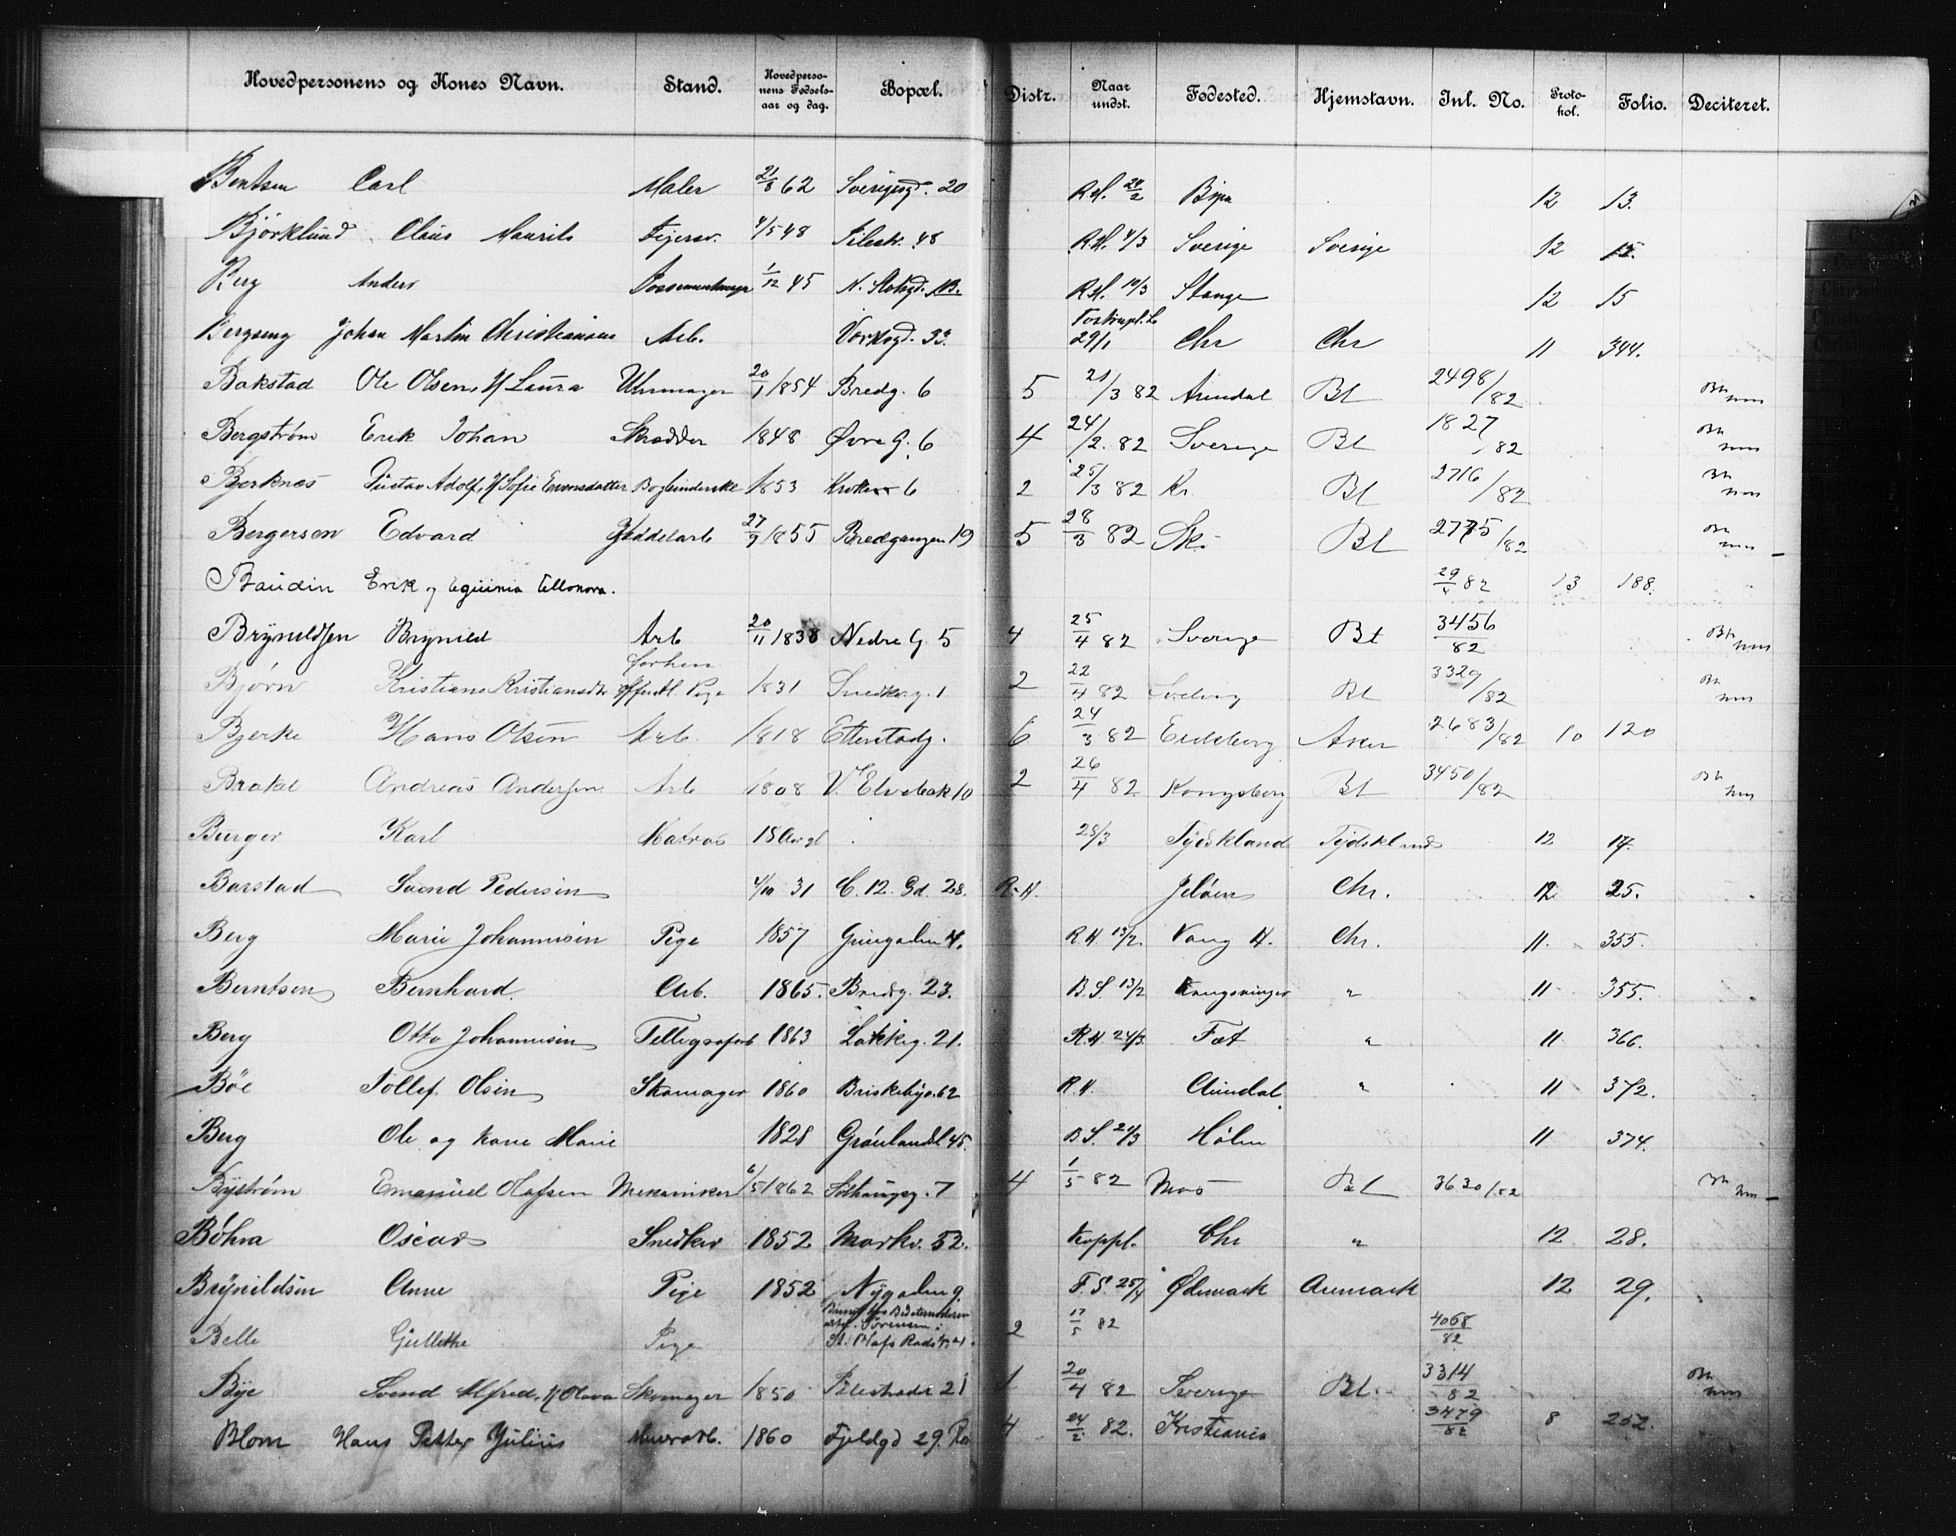 Hovedpersonens og Kones Navn. Stand. Hovedpersonens Fødselsaar og dag. Bopæl. Distr. Naar undst. Fødested. Hjemstavn. Inl. No. Protokol. Folio. Deciteret.
Bentsen Carl Maler 21/8 62 Sverigesgd. 20 R.H. 28/2 12 13.
Björklund Claus Maurits Fejersv. 4/5 48 Pilestr. 48 R.H. 4/3 Sverige Sverige 12 15.
Berg Anders 1/12 45 R.H. 10/3 Stange 12 15
Bergseng Johan Martin Christiansen Arb. 33. 29/1 Chr Chr 11 344.
Bakstad Ole Olsen, H Laura Uhrmager 20/1 1854 Bredg. 6 5 21/3 82 Arendal Bt 2498/82
Bergström Erik Johan Skrædder 1848 Øvre G. 6 4 24/2. 82 Sverige Bt 1827/82
Bjerknæs Gustav Adolf, H Sofie Evensdatter Bogbindersv. 1853 6 2 25/3 82 Kr. Bt 2716/82
Bergersen Edvard 27/9 1855 Bredgangen 19 5 28/3 82 Ski Bt 2775/82
Baudin Erik og Ellonora. 29/4 82 13 188.
Brynildsen Brynild Arb 20/11 1838 Nedre G. 5 4 25/4 82 Sverige Bt 3456/82
Bjørn Kristiane Kristiansdtr forhen offentl. Pige 1831 Snedkerg. 1 2 22/4 82 Bt 3329/82
Bjerke Hans Olsen Arb. 1818 Etterstadg. 6 24/3 82 Eidsberg Aker 2683/82 10 120
Brakel Andreas Andersen Arb 1808 V. Elvebak 10 2 26/4 82 Kongsberg Bt 3450/82
Burger Karl Matros 18 Aar gl 25/3 Tydskland Tydskland 12 17.
Barstad Svend Pedersen 4/10 31 C. 12. Gd. 28. R.H. Jeløen Chr. 12 25.
Berg Marie Johannesen Pige 1857 4. R.H 13/2. Vang H. Chr. 11. 355.
Berntsen Bernhard. Arb. 1865. Bredg. 23. B.S. 13/2 Kongsvinger " 11 355.
Berg Otto Johannesen Tellegrafarb 1863 Lakkeg. 21. R.H 24/3. Fet " 11 366.
Bøe Tollef Olsen Skomager 1860 Briskebyv. 62 R.H. Arendal " 11 372.
Berg Ole og kone Marie 1828 Grønlandsl 45. B.S. 21/3 Hølen 11 374.
Byström Emanuel Olafsen Mekaniker 6/5 1862 Solhaugsg. 7 4 1/5 82 Mos Bt 3630/82
Bøhra Oscar Snedker 1852 Markv. 52. Koppl. Chr " 12 28.
Brynildsen Anne Pige 1852 Nygaden 9. F.S. 25/4 Ødemark Aremark 12 29.
Belle Gullethe Pige Sørensen St. Olafs 2 17/5 82 4068/82
Bye Svend Alfred, H Olava Skomager 1850 Pilestrædet 21 1 20/4 82 Sverige Bt. 3314/82
Blom Hans Petter Julius Murarb. 1860 Fjeldgd 29. 4 24/2. 82. Kristiania 3479/82 8 252.